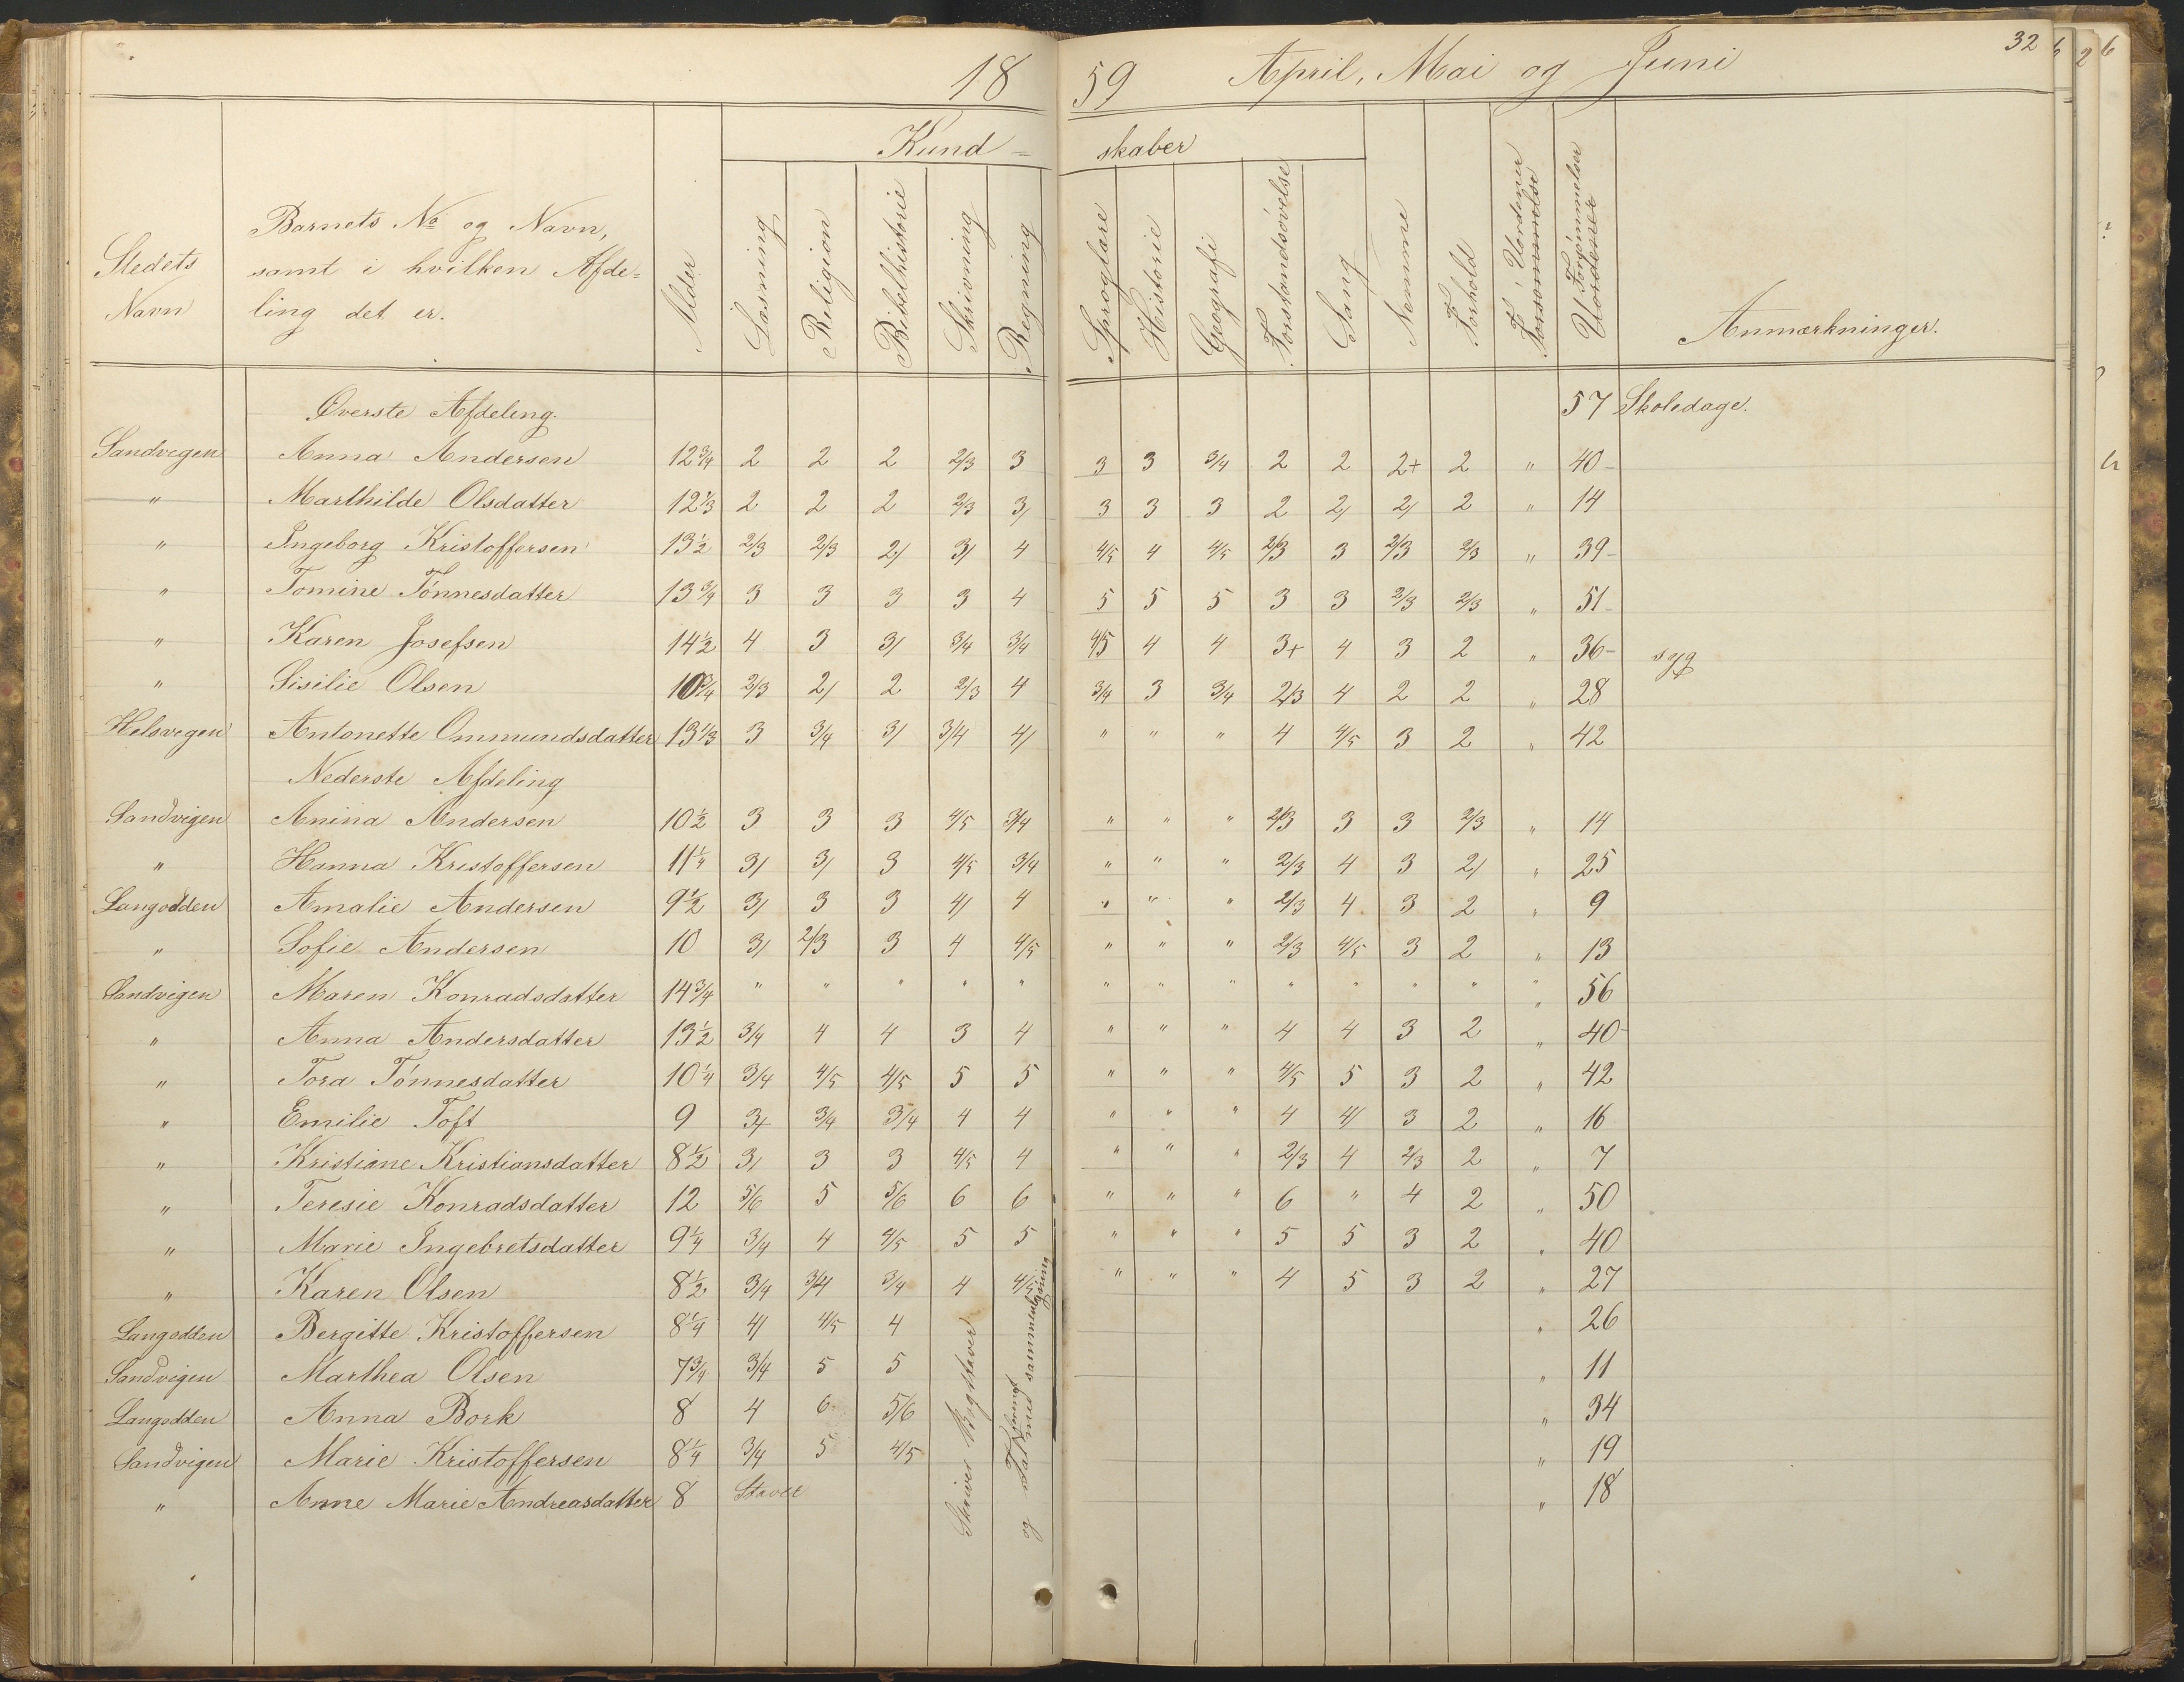 1859 April, Mai og Juni 32
Kundskaber
Stedets Navn | Barnets No og Navn, samt i hvilken Afdeling det er. | Alder | Læsning | Religion | Bibelhistorie | Skrivning | Regning | Sproglære | Historie | Geografi | Forstandsøvelse | Sang | Nemme | Forhold | Uordener | Forsømmelser Uordener | Anmærkninger.
Øverste Afdeling. 57 Skoledage.
Sandvigen Anna Andersen 12 3/4 2 2 2 2/3 3 3 3 3/4 2 2 2+ 2 " 40-
" Marthilde Olsdatter 12 1/3 2 2 2 2/3 3/ 3 3 3 2 2/ 2/ 2 " 14
" Ingeborg Kristoffersen 13 1/2 2/3 2/3 2/ 3/ 4 4/5 4 4/5 2/3 3 2/3 2/3 " 39-
" Tomine Tønnesdatter 13 3/4 3 3 3 3 4 5 5 5 3 3 2/3 2/3 " 51-
" Karen Josefsen 14 1/2 4 3 3/ 3/4 3/4 4/5 4 4 3+ 4 3 2 " 36- syg
" Sisilie Olsen 10 3/4 2/3 2/ 2 2/3 4 3/4 3 3/4 2/3 4 2 2 " 28
Helsvegen Antonette Ommundsdatter 13 1/3 3 3/4 3/ 3/4 4/ " " " 4 4/5 3 2 " 42
Nederste Afdeling
Sandvigen Anina Andersen 10 1/2 3 3 3 4/5 3/4 " " " 2/3 3 3 2/3 " 14
" Hanna Kristoffersen 11 1/4 3/ 3/ 3 4/5 3/4 " " " 2/3 4 3 2/ " 25
Langodden Amalie Andersen 9 1/2 3/ 3 3 4/ 4 " " " 2/3 4 3 2 " 9
" Sofie Andersen 10 3/ 2/3 3 4 4/5 " " " 2/3 4/5 3 2 " 13
Sandvigen Maren Konradsdatter 14 3/4 " " " " " " " " " " " " " 56
" Anna Andersdatter 13 1/2 3/4 4 4 3 4 " " " 4 4 3 2 " 40-
" Tora Tønnesdatter 10 1/4 3/4 4/5 4/5 5 5 " " " 4/5 5 3 2 " 42
" Emilie Toft 9 3+ 3/4 3/4 4 4 " " " 4 4/ 3 2 " 16
" Kristiane Kristiansdatter 8 1/2 3/ 3 3 4/5 4 " " " 2/3 4 2/3 2 " 7
" Teresie Konradsdatter 12 5/6 5 5/6 6 6 " " " 6 " 4 2 " 50
" Marie Ingebretsdatter 9 1/4 3/4 4 4/5 5 5 " " " 5 5 3 2 " 40
" Karen Olsen 8 1/2 3/4 3/4 3/4 4 4/5 " " " 4 5 3 2 " 27
Langodden Bergitte Kristoffersen 8 1/4 4/ 4/5 4 " 26
Sandvigen Marthea Olsen 7 3/4 3/4 5 5 " 11
Langodden Anna Bork 8 4 6 5/6 " 34
Sandvigen Marie Kristoffersen 8 1/4 3/4 5 4/5 " 19
" Anne Marie Andreasdatter 8 Staver " 18
Skriver Bogstaver
og Tal med sammenlægning